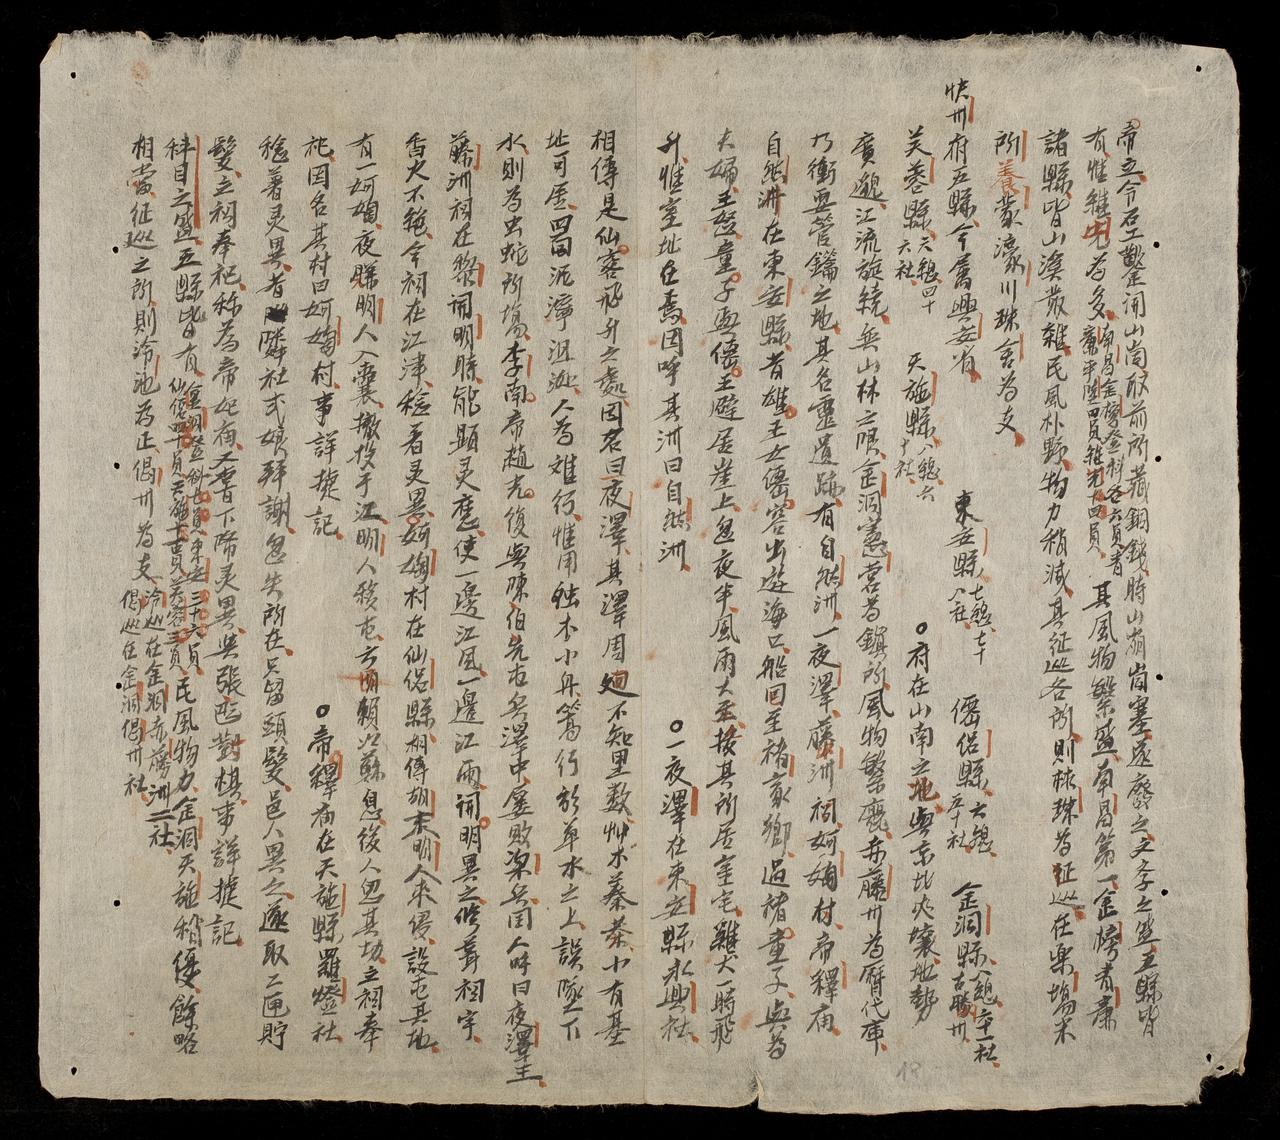 帝立令石工鑿開山崗取前所藏銅錢時山崩崗塞遂廢之文孝之盛五縣皆
有惟雄先為多南昌金榜登科各六員青廉平陸四員雄先十四員其風物繁盛南昌第一金榜青廉
諸縣皆山溪叢雜民風朴野物力稍減其征巡各所則林珠為征巡在樂塲米
所養蒙濠川珠舍為支
快州府五縣今属興安省 東安縣七總七十八社 僊侣縣六總五十社 金洞縣八總六十一社古勝州
芙蓉縣六總四十六社 天施縣八總六十社 府在山南之地與京北夾壤地勢
廣邈江流旋繞無山林之限金洞憲营為鎮所風物繁麗赤藤州為曆代庫
乃衝要管鑰之地其名靈遺跡有自然洲一夜澤藤洲祠妸婍村帝釋庙
自然洲在東安縣昔雄王女僊容出遊海口船回至褚家鄉過褚童子與為
夫婦王怒童子與僊王避居崖上忽夜半風雨大至接其所居室宅雞犬一時飛
升惟室址在焉因呼其洲曰自然洲 一夜澤在東安縣永興社
相傳是仙容飛升之處因名曰夜澤其澤周廻不知里数艸木蓁荼小有基
址可居四面泥濘沮洳人為难行惟用独木小舟篙行於草水之上誤墜下
水則為虫蛇所塲李南帝趙光復與陳伯先屯兵澤中屡敗梁兵国人呼曰夜澤王
藤洲祠在黎開明時能顯灵應使一邊江風一邊江雨開明異之修葺祠宇
香火不絶今祠在江津稔著灵異妸婍村在仙侣縣相傳胡末明人來侵設屯其地
有一妸婍夜賜明人入囊撤投于江明人移屯方境賴以蘇息後人忽其功立祠奉
祀因名其村曰妸婍村事詳攄記 帝釋庙在天施縣羅燈社
稔著灵異者隣社弍娘拜謝忽失所在只留頭髮邑人異之遂取二匣貯
髮立祠奉祀称為帝妃庙又書下降灵異與張巴對棋事詳攄記
科目之盛五縣皆有金洞登科七員東安三十六員仙侣四十員天施十五員芙蓉三員民風物力金洞天施稍優餘略
相當征巡之所則泠池為正偈州為支泠巡在金洞赤藤洲二社偈巡在金洞偈州社